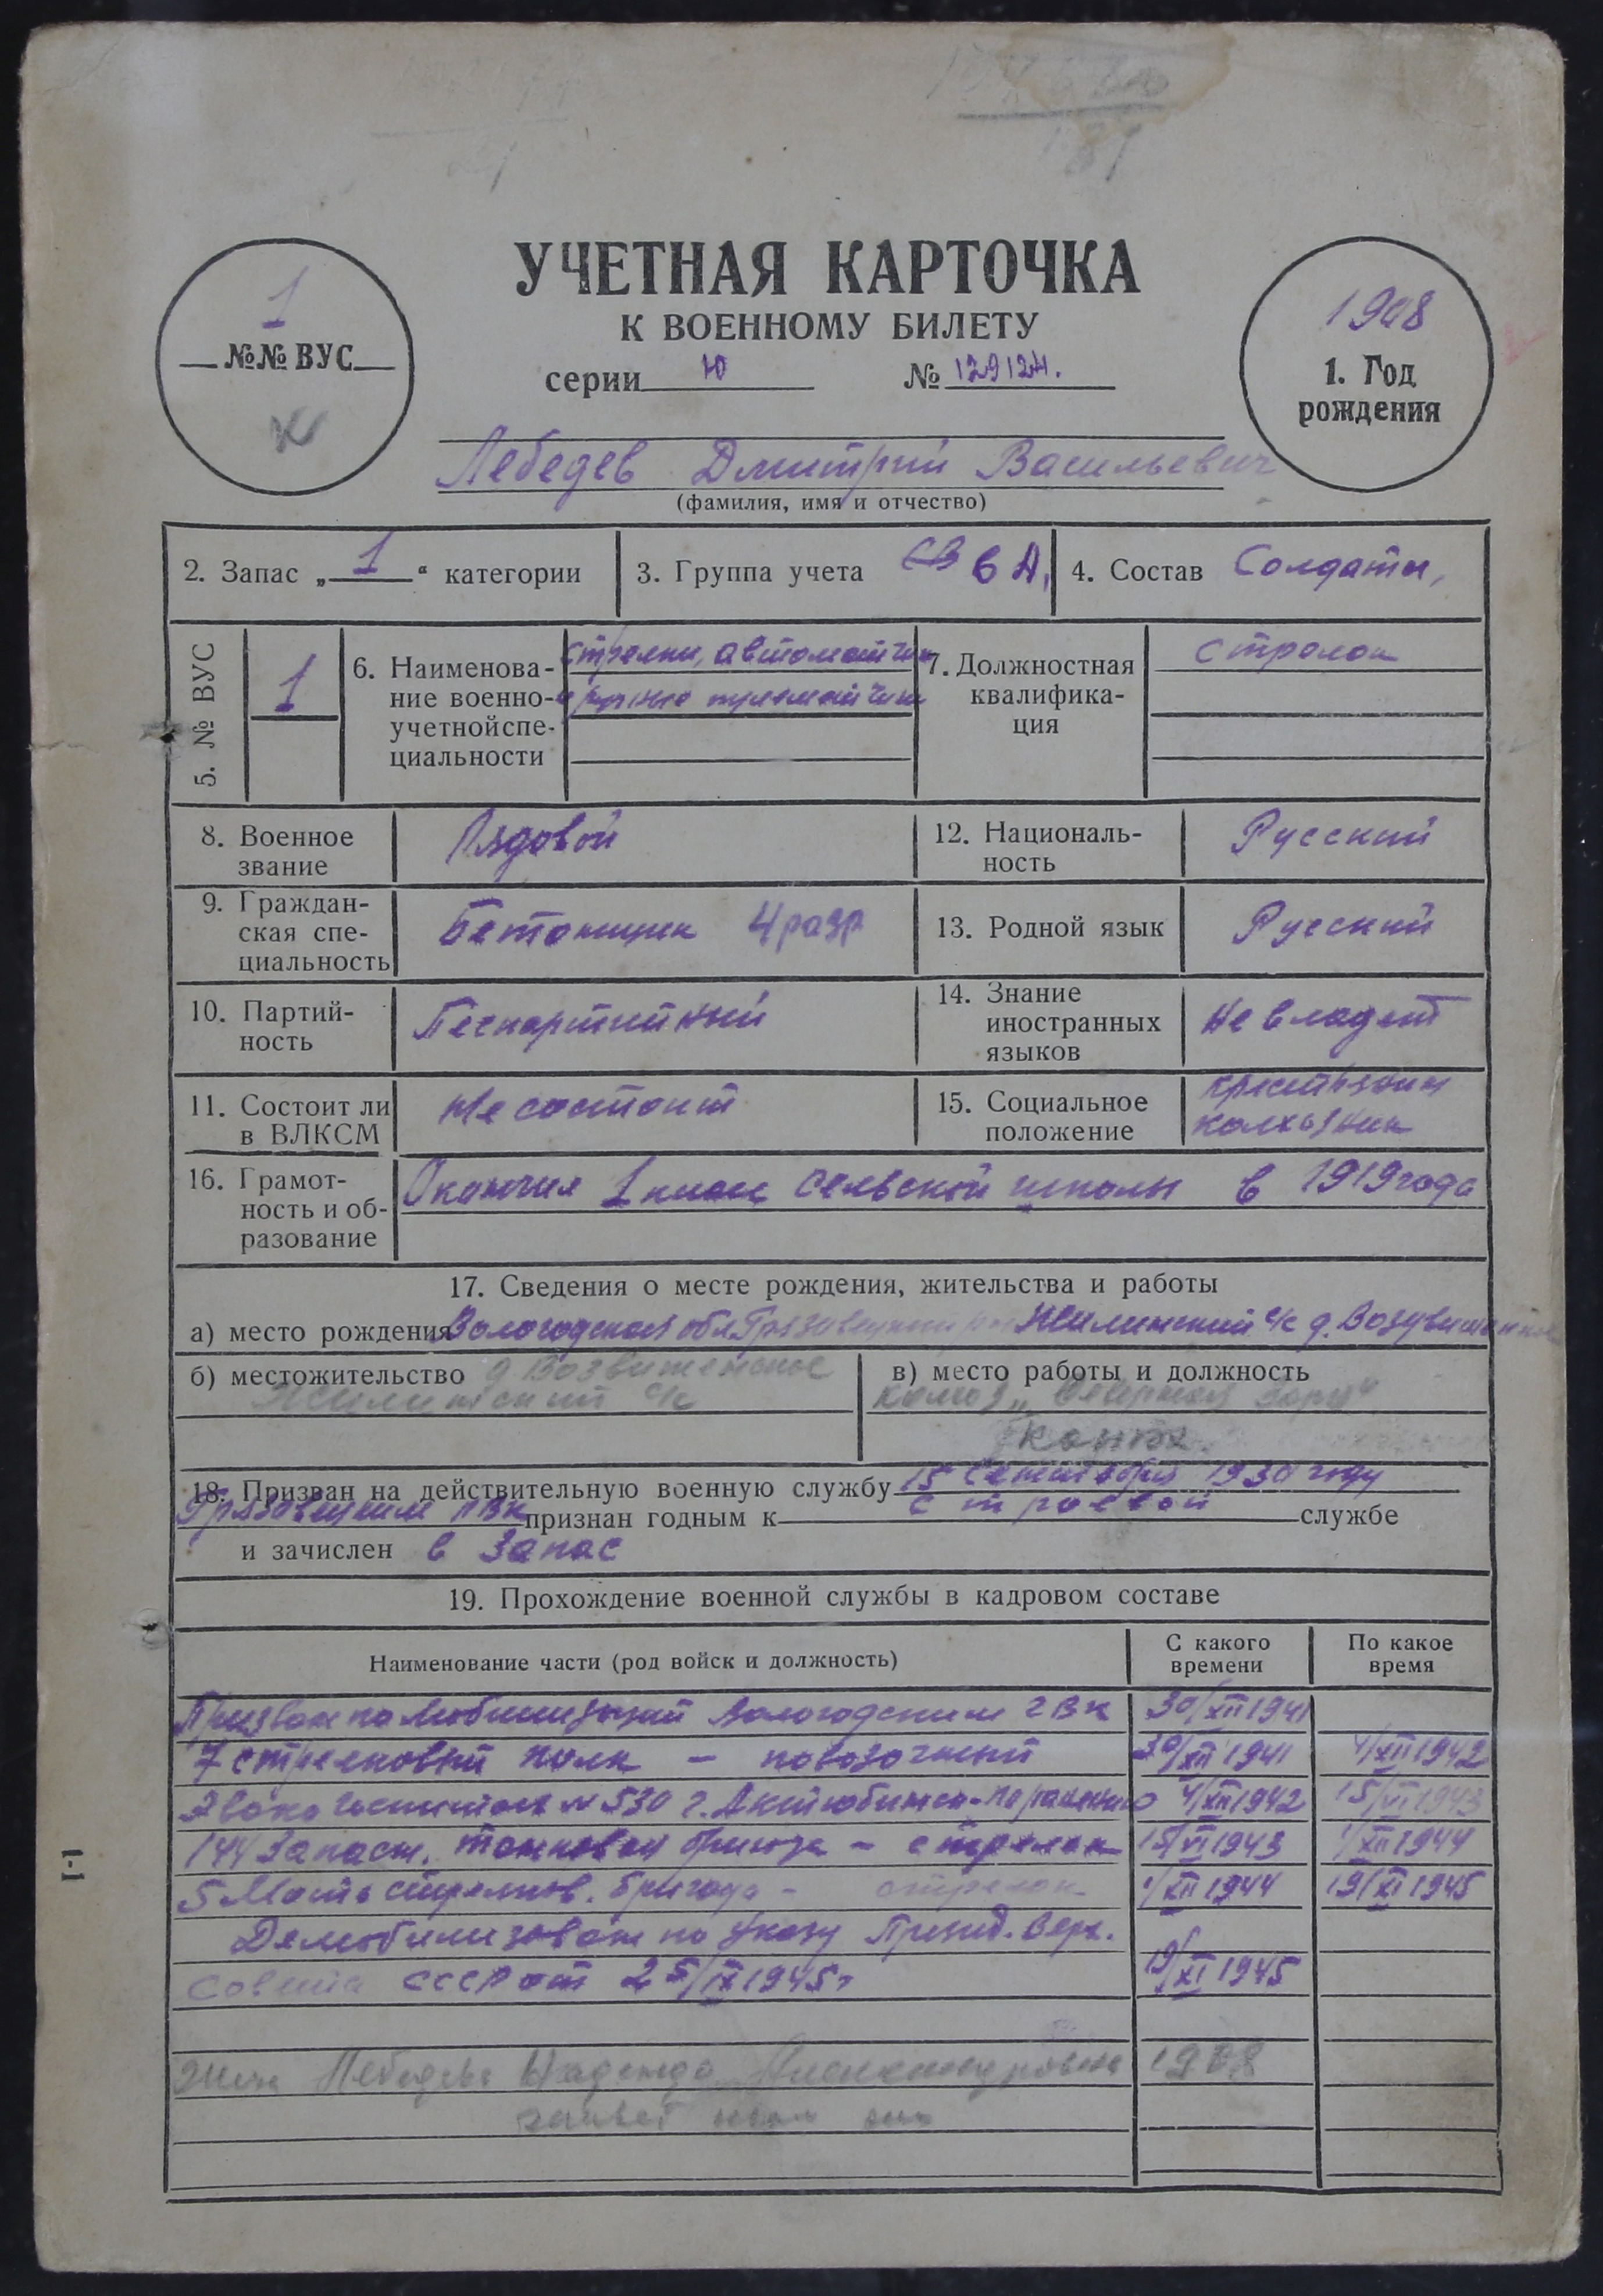 УЧЕТНАЯ КАРТОЧКА
К ВОЕННОМУ БИЛЕТУ
серии Ю № 129124.
1
№№ ВУС
1908
1. Год
рождения
Лебедев Дмитрий Васильевич
(фамилия, имя и отчество)
2. Запас „ 1 “ категории
3. Группа учета СВ 6 А,
4. Состав Солдаты,
5. № ВУС
1
6. Наименова-
ние военно-
учетной спе-
циальности
стрелки, автоматчики
ручные пулеметчики
7. Должностная
квалифика-
ция
стрелок
8. Военное
звание
Рядовой
12. Националь-
ность
Русский
9. Граждан-
ская спе-
циальность
Бетонщик 4 разр
13. Родной язык
Русский
10. Партий-
ность
Беспартийный
14. Знание
иностранных
языков
Не владеет
11. Состоит ли
в ВЛКСМ
Не состоит
15. Социальное
положение
крестьянин
колхозник
16. Грамот-
ность и об-
разование
Окончил 1 класс сельской школы в 1919 года
17. Сведения о месте рождения, жительства и работы
а) место рождения Вологодская обл Грязовецкий Жилинский с/с д.
б) местожительство д Воздвиженское
Жилинский с/с
в) место работы и должность
колхоз „Северная Заря“
18. Призван на действительную военную службу 15 сентября 1930 году
Грязовецким РВК признан годным к строевой службе
и зачислен в запас
19. Прохождение военной службы в кадровом составе
Наименование части (род войск и должность)
С какого
времени
По какое
время
Призван по мобилизаций Вологодским ГВК 30/XII 1941
7 стрелковый полк – повозочный 30/XII 1941 4/XII 1942
Эвакогоспиталь № 530 г. Актюбинск – по ранению 4/XII 1942 15/VI 1943
144 запасн. танковая бригада – стрелок 15/VI 1943 1/XII 1944
5 стрелков. бригада – стрелок 1/XII 1944 19/XI 1945
Демобилизован по Указу Презид. Верх.
Совета СССР от 25/IX 1945 г 19/XI 1945
жена Лебедева Надежда Александровна 1908
I-1